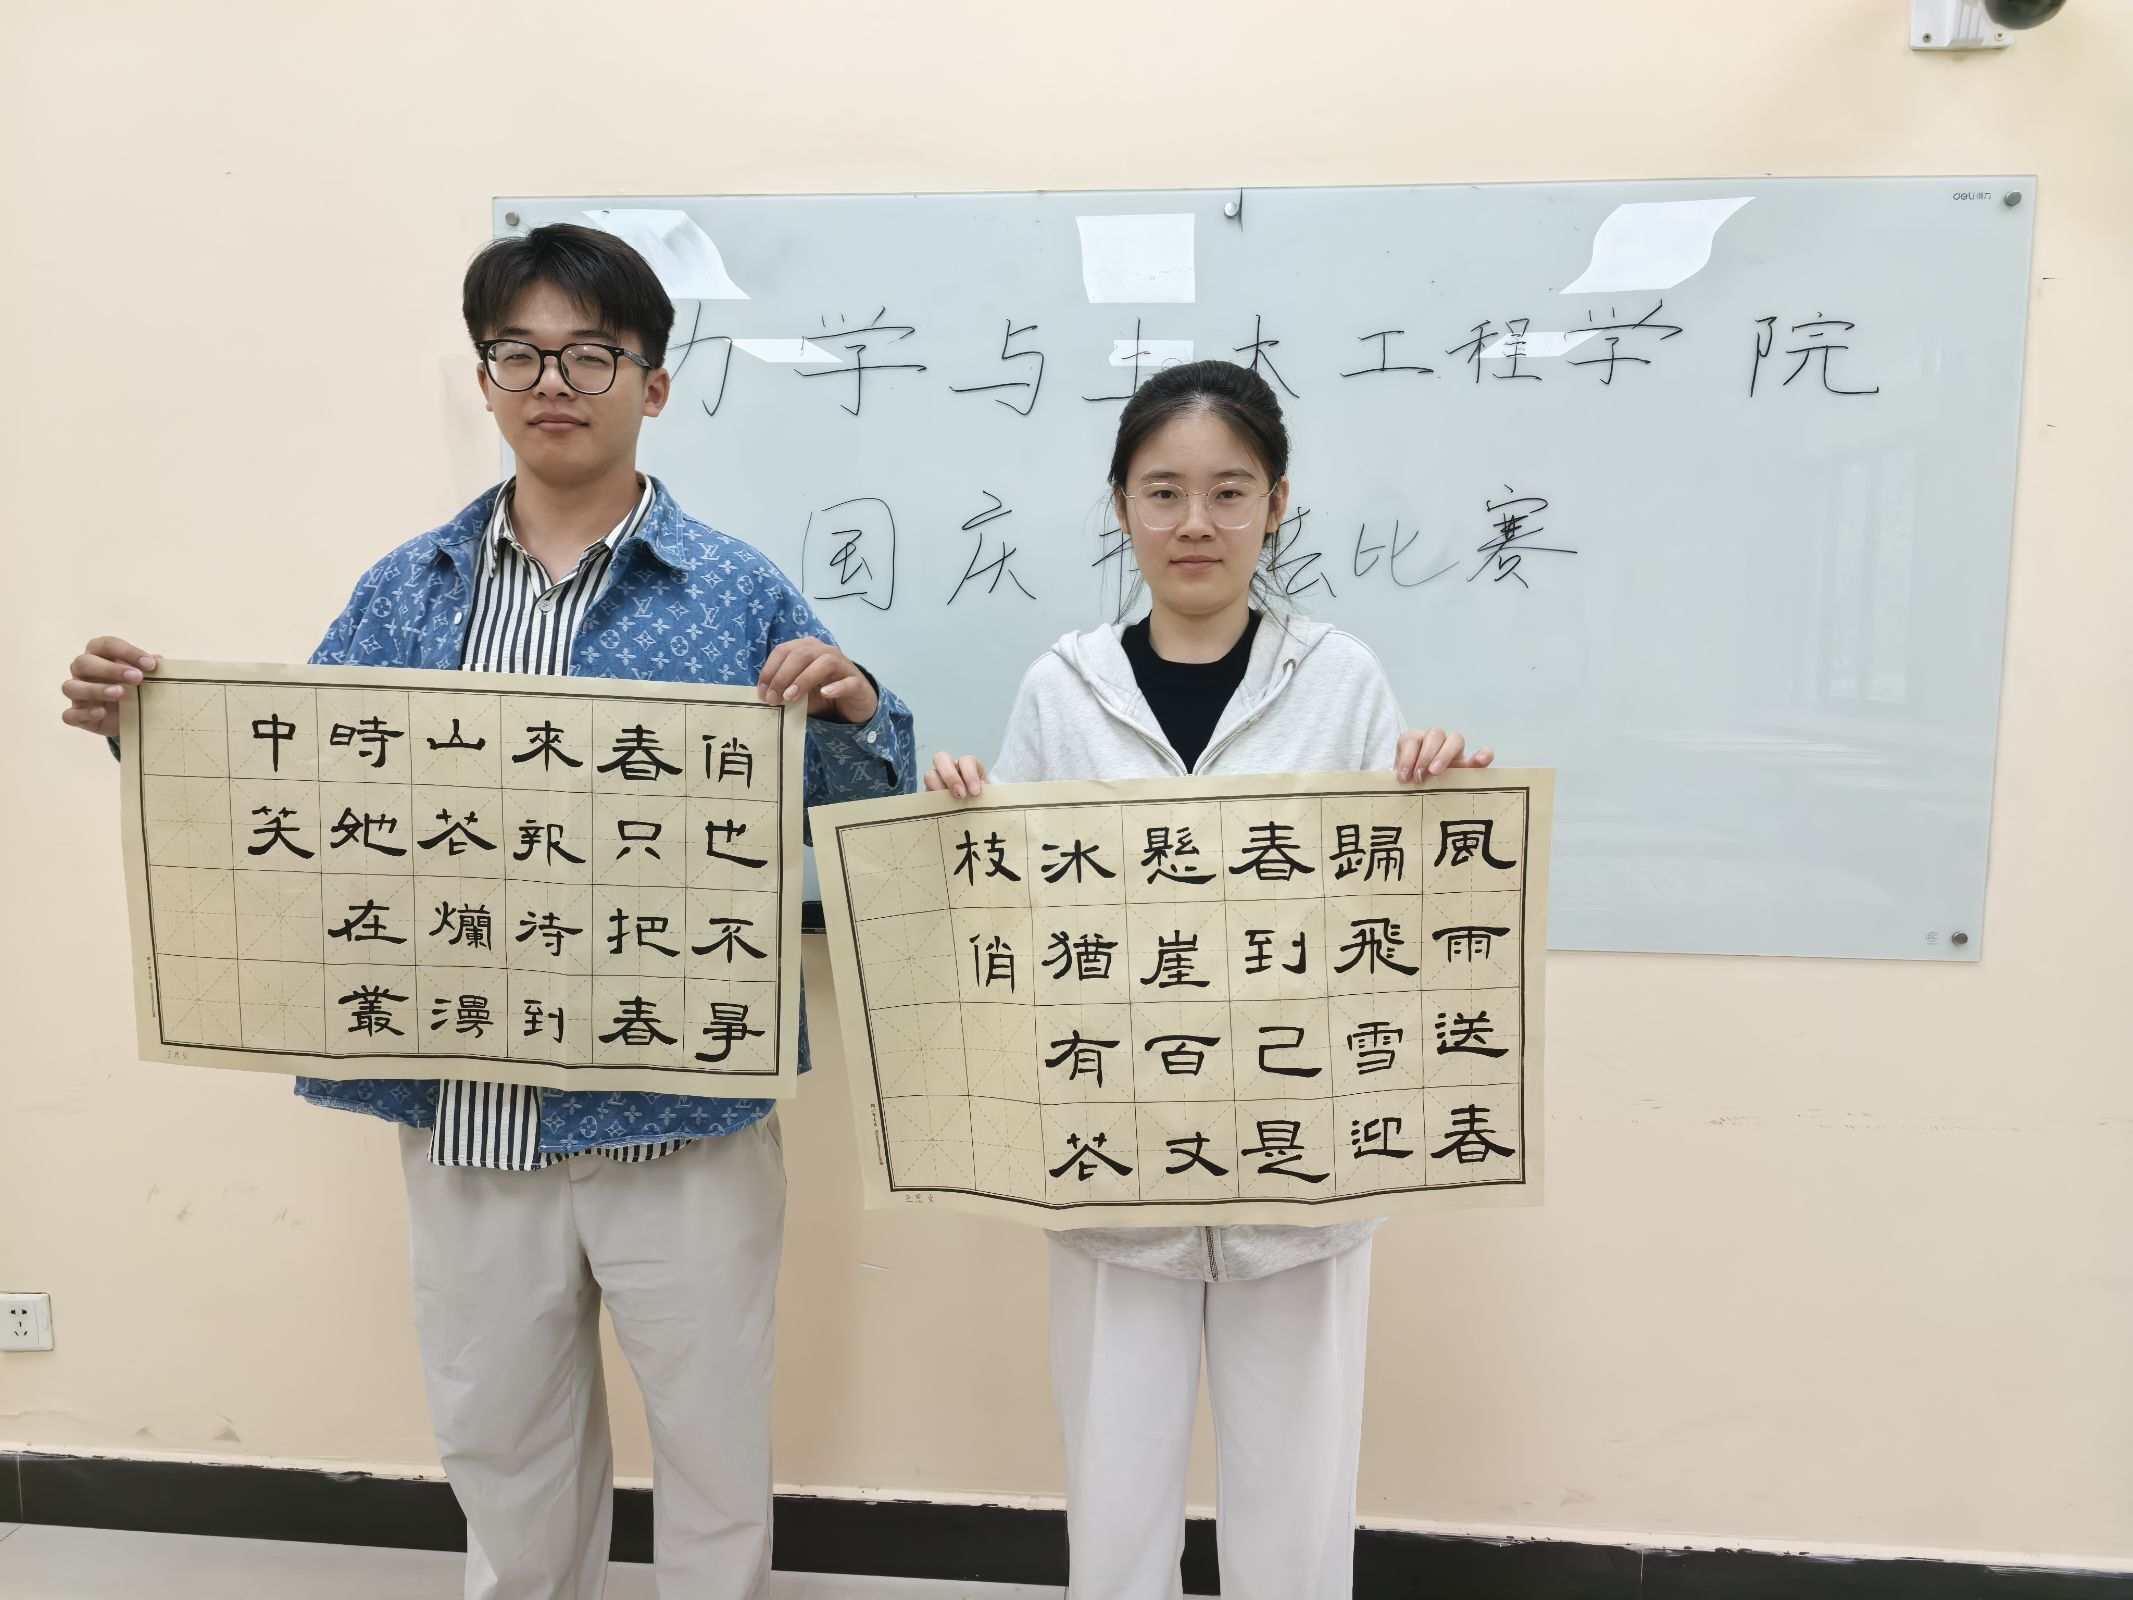 力学与土木工程学院
国庆 法比赛
deli得力
風雨送春
歸飛雪迎
春到已是
懸崖百丈
冰猶有花
枝俏
俏也不爭
春只把春
來報待到
山花爛漫
時她在叢
中笑